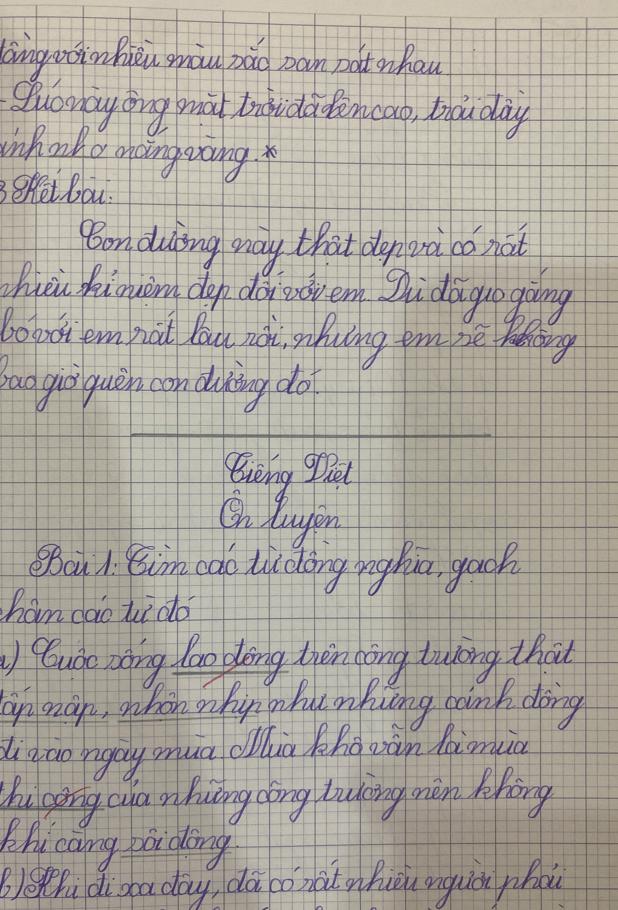 tầng với nhiều màu sắc san sát nhau
- Lúc này ông mặt trời đã lên cao, trải đầy
ánh nắng vàng.*
3 Kết bài:
Con đường này thật đẹp và có rất
nhiều kỉ niệm đẹp đối với em. Dù đã gắng
bó với em rất lâu rồi, nhưng em sẽ không
bao giờ quên con đường đó.
Tiếng Việt
Ôn luyện
Bài 1: Tìm các từ đồng nghĩa, gạch
chân các từ đó
a) Cuộc sống lao động trên công trường thật
tấp nập, nhộn nhịp như những cánh đồng
đi vào ngày mùa. Mùa khô vẫn là mùa
thi công của những công trường nên không
khí càng sôi động.
b) Khi đi xa đây, đã có rất nhiều người phải